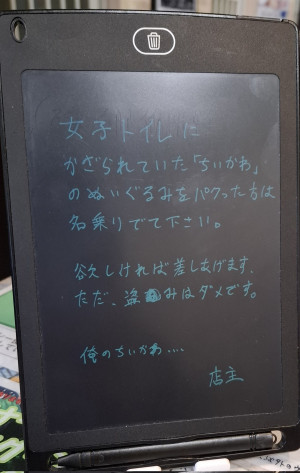 女子トイレに
かざられていた「ちいかわ」
のぬいぐるみをパクった方は
名乗りでて下さい。
欲しければ差しあげます、
ただ、盗みはダメです。
俺のちいかわ・・・・
店主